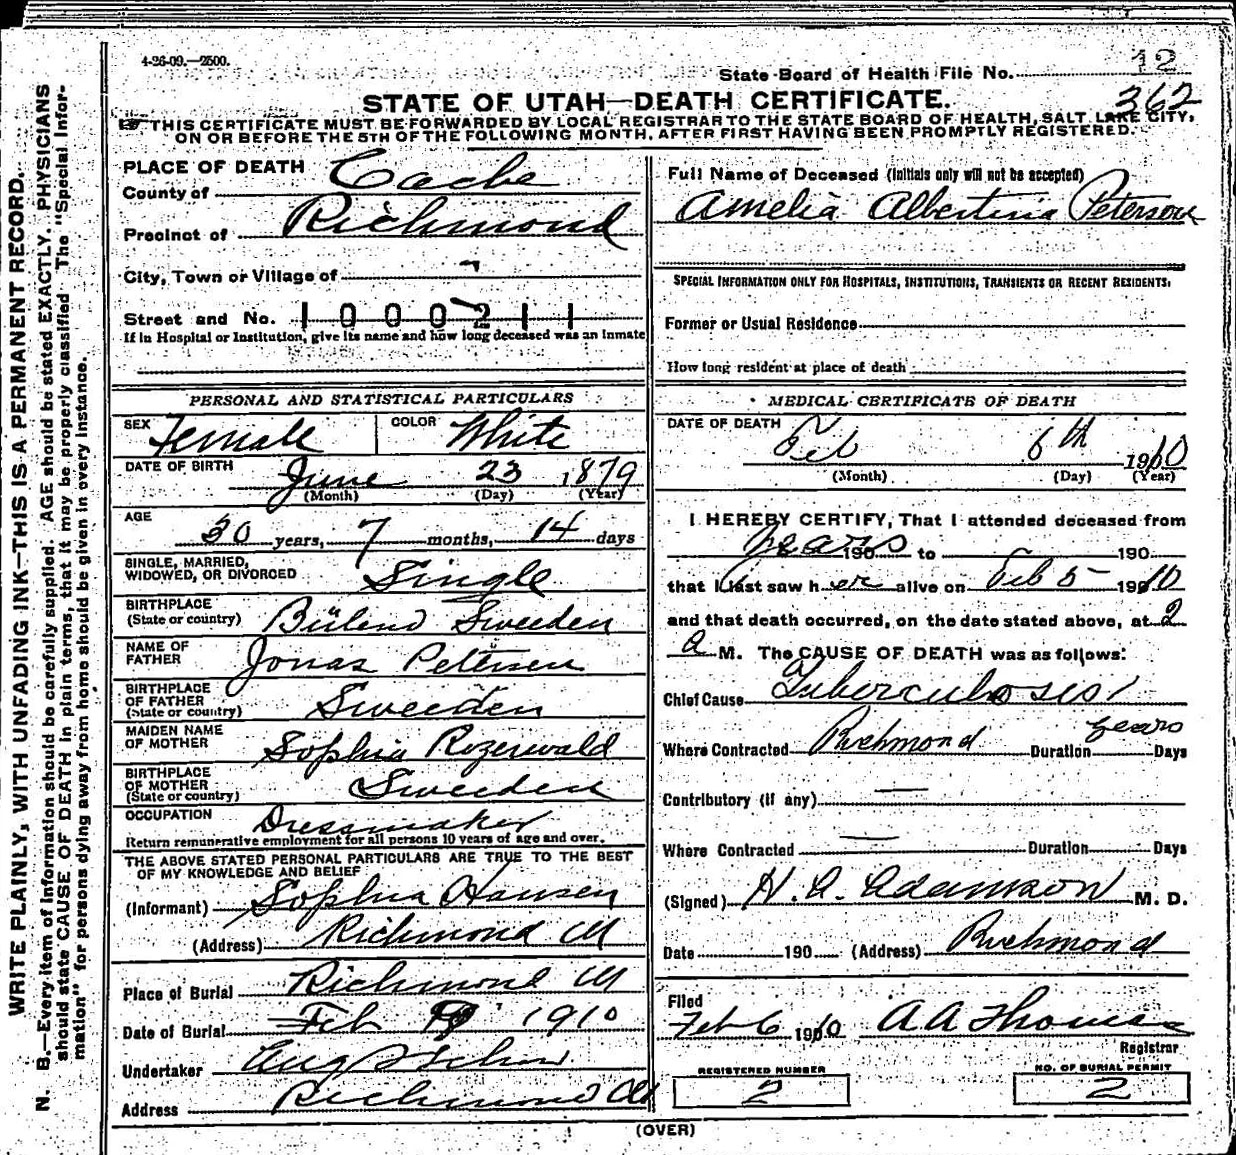 4-26-09.—2500.
State Board of Health File No. 12
362
STATE OF UTAH—DEATH CERTIFICATE.
THIS CERTIFICATE MUST BE FORWARDED BY LOCAL REGISTRAR TO THE STATE BOARD OF HEALTH, SALT LAKE CITY,
ON OR BEFORE THE 5TH OF THE FOLLOWING MONTH, AFTER FIRST HAVING BEEN PROMPTLY REGISTERED.
WRITE PLAINLY, WITH UNFADING INK—THIS IS A PERMANENT RECORD.
N. B.—Every item of information should be carefully supplied. AGE should be stated EXACTLY. PHYSICIANS
should state CAUSE OF DEATH in plain terms, that it may be properly classified. The "Special Infor-
mation" for persons dying away from home should be given in every instance.
PLACE OF DEATH
County of Cache
Precinct of Richmond
City, Town or Village of
Street and No. 1000211
If in Hospital or Institution, give its name and how long deceased was an inmate
PERSONAL AND STATISTICAL PARTICULARS
SEX Female COLOR White
DATE OF BIRTH June 23 1879
(Month) (Day) (Year)
AGE 30 years, 7 months, 14 days
SINGLE, MARRIED,
WIDOWED, OR DIVORCED Single
BIRTHPLACE
(State or country) Sweeden
NAME OF
FATHER Jonas Petersen
BIRTHPLACE
OF FATHER
(State or country) Sweeden
MAIDEN NAME
OF MOTHER Sophia
BIRTHPLACE
OF MOTHER
(State or country) Sweeden
OCCUPATION Dressmaker
Return remunerative employment for all persons 10 years of age and over.
THE ABOVE STATED PERSONAL PARTICULARS ARE TRUE TO THE BEST
OF MY KNOWLEDGE AND BELIEF
(Informant) Sophia Hansen
(Address) Richmond Ut
Place of Burial Richmond Ut
Date of Burial Feb 1910
Undertaker Aug
Address Richmond Ut
Full Name of Deceased (Initials only will not be accepted)
Amelia Albertina Peterson
SPECIAL INFORMATION ONLY FOR HOSPITALS, INSTITUTIONS, TRANSIENTS OR RECENT RESIDENTS.
Former or Usual Residence
How long resident at place of death
MEDICAL CERTIFICATE OF DEATH
DATE OF DEATH
Feb 6th 1910
(Month) (Day) (Year)
I HEREBY CERTIFY, That I attended deceased from
years 190 to 190
that I last saw her alive on Feb 5 1910
and that death occurred, on the date stated above, at 2
a M. The CAUSE OF DEATH was as follows:
Chief Cause Tuberculosis
Where Contracted Richmond Duration years Days
Contributory (if any) —
Where Contracted — Duration Days
(Signed) H. A. Adamson M. D.
Date 190 (Address) Richmond
Filed
Feb 6 1910 A A Thomas
Registrar
REGISTERED NUMBER
2
NO. OF BURIAL PERMIT
2
(OVER)